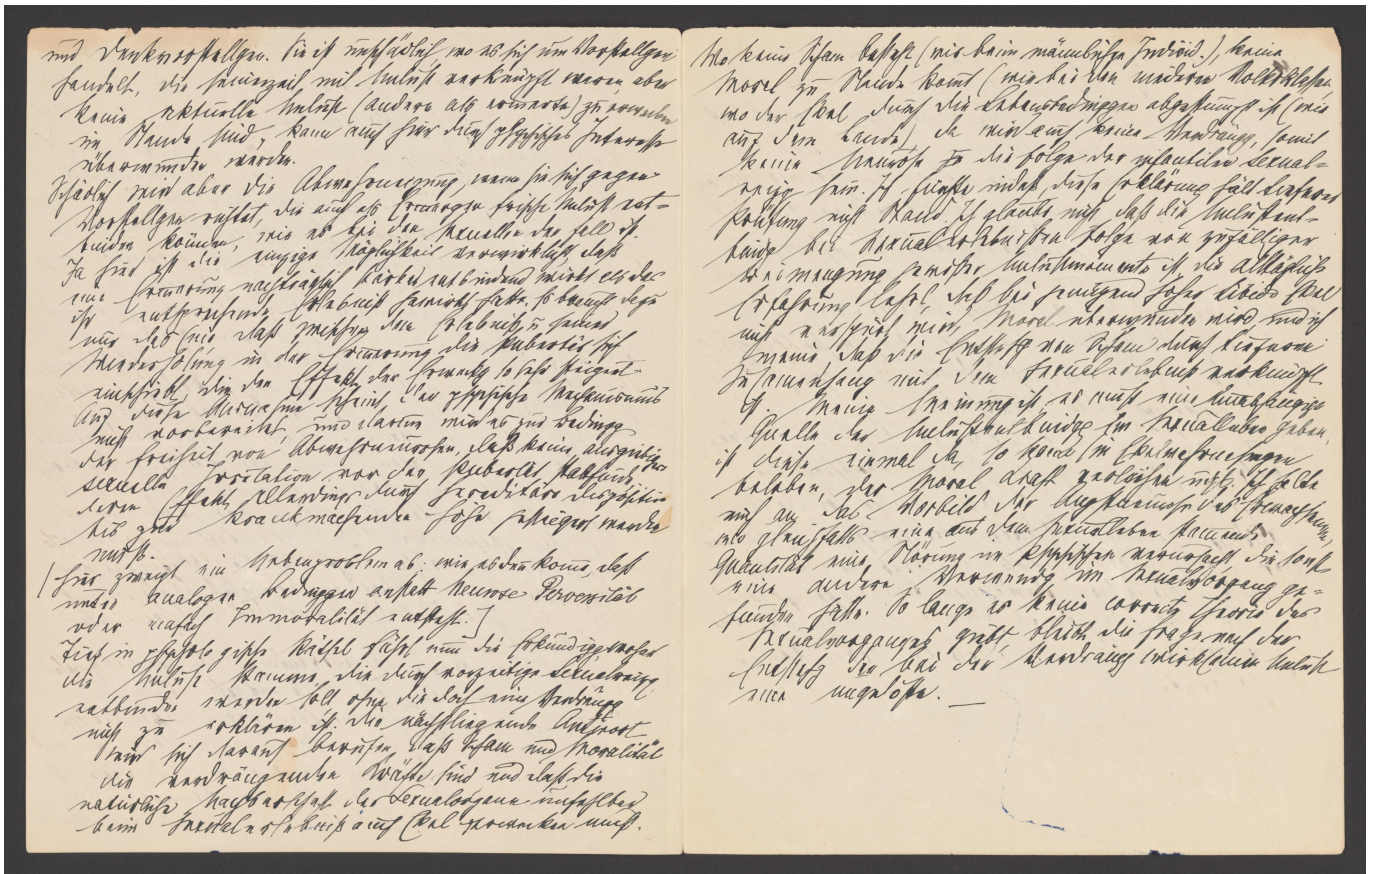 und Denkvorstellgen. Sie ist unschädlich wo es sich um Vorstellgen
handelt, die seinerzeit mit Unlust verknüpft waren, aber
keine aktuelle Unlust (andere als erinnerte) zu erwerben
im Stande sind, kann auch hier durch psychisches Interesse
überwunden werden.
Schädlich wird aber die Abwehrneigung, wenn sie sich gegen
Vorstellgen richtet, die auch als Erinnergen frische Unlust ent-
binden können, wie es bei den sexuellen der Fall ist.
Ja hier ist die einzige Möglichkeit verwirklicht, daß
eine Erinnerung nachträglich stärker entbindend wirkt als das
ihr entsprechende Erlebniß gewirkt hatte. Es braucht dazu
nur das eine daß zwischen dem Erlebniß u seiner
Wiederholung in der Erinnerung die Pubertät sich
einschiebt, die den Effekt der Erweckg so sehr steigert.
Auf diese Ausnahme scheint der psychische Mechanismus
nicht vorbereitet, und darum wird es zur Bedingg
der Freiheit von Abwehrneurosen, daß keine ausgiebigere
sexuelle Irritation vor der Pubertät stattfinde,
deren Effekt allerdings durch hereditäre Disposition
bis zur krankmachenden Höhe gesteigert werden
muß.
(Hier zweigt ein Nebenproblem ab: wie es denn komt, daß
unter analogen Bedinggen anstatt Neurose Perversität
oder einfach Immoralität entsteht.]
Tief in psychologische Räthsel führt nun die Erkundigg woher
die Unlust stamme, die durch vorzeitige Sexualreizg
entbunden werden soll ohne die doch eine Verdrängg
nicht zu erklären ist. Die nächstliegende Antwort
wird sich darauf berufen, daß Scham und Moralität
die verdrängenden Kräfte sind und daß die
natürliche Nachbarschaft der Sexualorgane unfehlbar
beim Sexualerlebniß auch Ekel erwecken muß.
Wo keine Scham besteht (wie beim männlichen Individ.), keine
Moral zu Stande komt (wie bei den niederen Volksklassen,
wo der Ekel durch die Lebensbedinggen abgestumpft ist (wie
auf dem Lande) da wird auch keine Verdrängg, somit
keine Neurose zu die Folge der infantilen Sexual-
reizg sein. Ich fürchte indeß, diese Erklärung hält tieferer
Prüfung nicht Stand. Ich glaube nicht, daß die Unlustent-
bindg bei Sexualerlebnissen Folge von zufälliger
Beimengung gewisser Unlustmomente ist. Die alltägliche
Erfahrung lehrt, daß bei genügend hoher Libido Ekel
nicht verspürt wird, Moral überwunden wird und ich
meine, daß die Entstehg von Scham durch tieferen
Zusamenhang mit dem Sexualerlebniß verknüpft
ist. Meine Meinung ist es muß eine unabhängige
Quelle der Unlustentbindg im Sexualleben geben,
ist diese einmal da, so kann sie Ekelwahrnehmgen
beleben, der Moral Kraft verleihen udgl. Ich halte
mich an das Vorbild der Angstneurose des Erwachsenen,
wo gleichfalls eine aus dem Sexualleben stamende
Quantität eine Störung im Psychischen verursacht die sonst
eine andere Verwendg im Sexualvorgang ge-
funden hätte. So lange es keine correcte Theorie des
Sexualvorganges giebt, bleibt die Frage nach der
Entstehg der bei der Verdrängg wirksamen Unlust
eine ungelöste. —